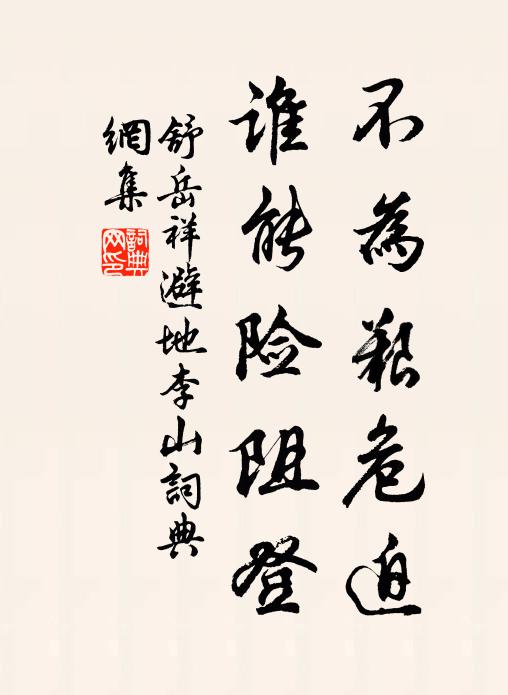 不為艱危迫
谁能险阻登
舒岳祥避地李山詞典
網集
詞典网印